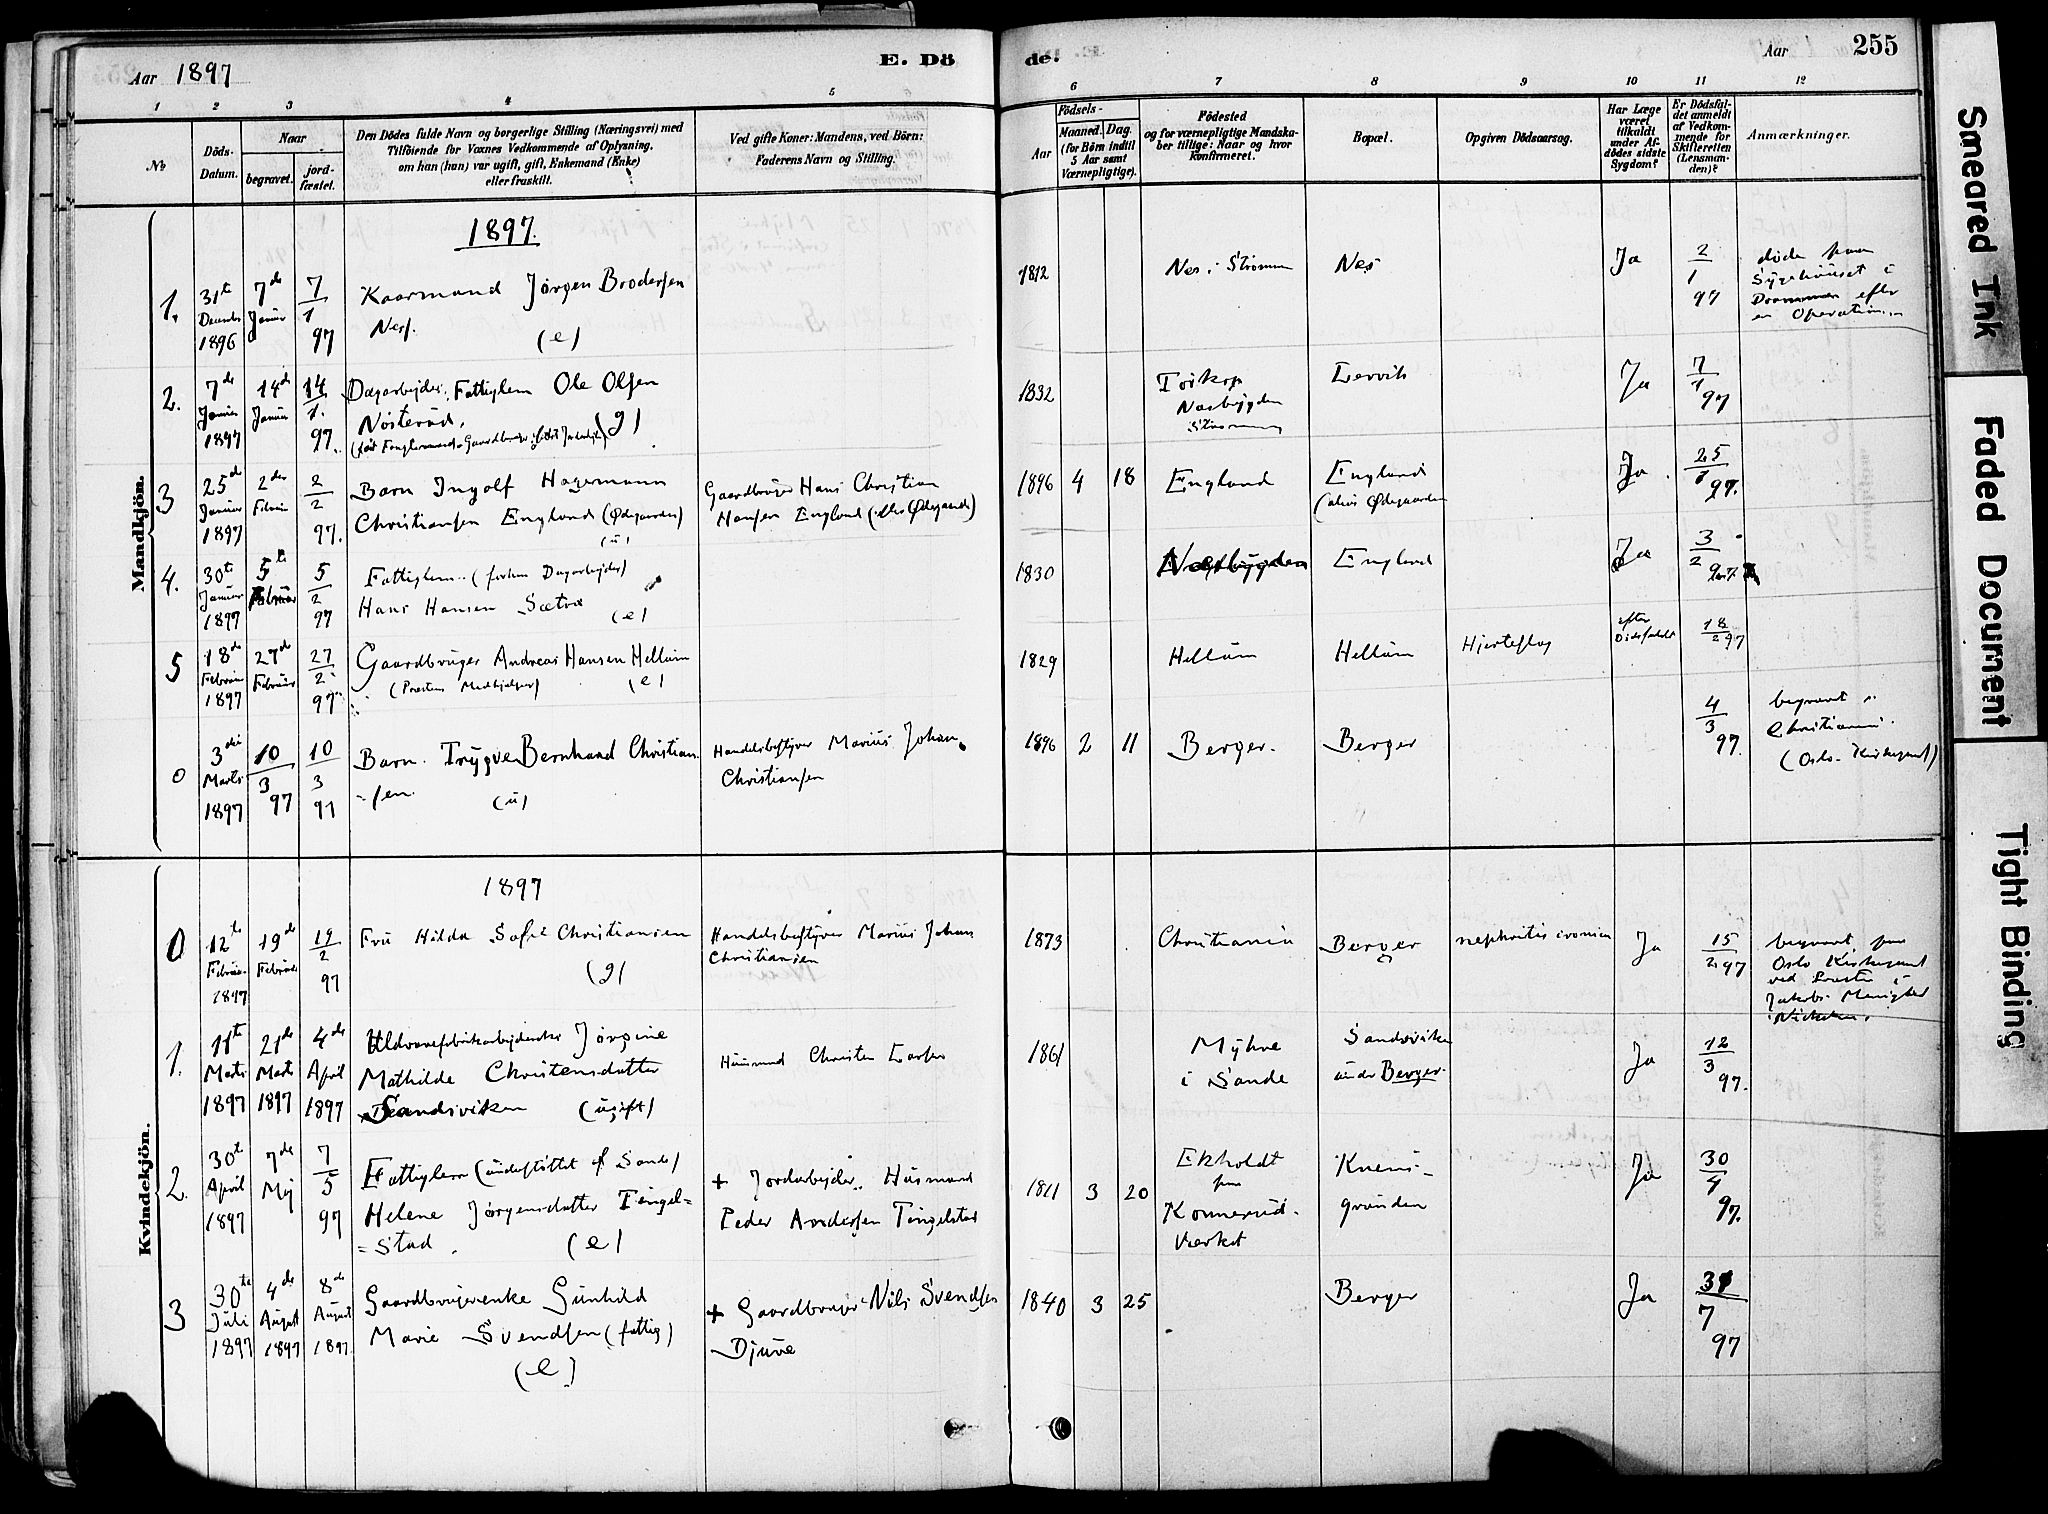 Aar 1897
E. Dö
de.
Aar
255
1
2
3
4
5
6
7
8
9
10
11
12
No
Döds-
Datum.
Naar
begravet.
jord-
fæstet.
Den Dödes fulde Navn og borgerlige Stilling (Næringsvei) med
Tilföiende for Voxnes Vedkommende af Oplysning,
om han (hun) var ugift, gift, Enkemand (Enke)
eller fraskilt.
Ved gifte Koner: Mandens, ved Börn:
Faderens Navn og Stilling.
Födsels-
Aar
Maaned.
Dag.
(for Börn indtil
5 Aar samt
Værnepligtige).
Födested
og for værnepligtige Mandska-
ber tillige: Naar og hvor
konfirmeret.
Bopæl.
Opgiven Dödsaarsag.
Har Læge
været
tilkaldt
under Af-
dödes sidste
Sygdom?
Er Dödsfal-
det anmeldt
af Vedkom-
mende for
Skifteretten
(Lensman-
den)?
Anmærkninger.
Mandkjön.
1897.
1.
31te
1896
7de
Januar
7
1
97
Kaarmand Jørgen Brodersen
Nes.
(e)
1812
Nes i Strømm
Nes
Ja
2
1
97
døde paa
Sygehuset i
Drammen efter
en Operation
2.
7de
Januar
1897
14de
Januar
14
1.
97.
Dagarbejder, Fattiglem Ole Olsen
Nøsterud,
(g)
1832
Nesbygden
Strømm
Lervik
Ja
7
1
97
3
25de
Januar
1897
2den
Februar
2
2
97.
Barn Ingolf Hagemann
Christiansen England (Ødegaarden)
(u)
Gaardbruger Hans Christian
Hansen England (alias Ødegaarden)
1896
4
18
England
England
(alias Ødegaarden
Ja
25
1
97.
4.
30te
Januar
1897
5te
Februar
5
2
97
Fattiglem (forhen Dagarbejder)
Hans Hansen Sætra
(e)
1830
Nesbygden
England
Ja
3
2
97
5
18de
Februar
1897
27de
Februar
27
2
97
Gaardbruger Andreas Hansen Hellum
(Prestens Medhjælper)
(e)
1829
Hellum
Hellum
Hjerteslag
efter
Dødsfaldet
18
2 97
0
3die
Marts
1897
10
3
97
10
3
97
Barn Trygve Bernhard Christian
=sen.
(u)
Handelsbestyrer Marius Johan
Christiansen
1896
2
11
Berger.
Berger
4
3
97.
begravet i
Christiania.
(Oslo Kirkegaard)
Kvindekjön.
1897
0
12te
Februar
1897
19de
Februar
19
2
97
Fru Hilda Sofie Christiansen
(g)
Handelsbestyrer Marius Johan
Christiansen
1873
Christiania
Berger
Ja
15
2 97
begravet paa
Oslo Kirkegaard
ved Presten i
Jakobs Menighed
1.
11te
Marts
1897
21de
Marts
1897
4de
April
1897
Uldvarefabrikarbejderske Jørgine
Mathilde Christensdatter
Sandsviken
(ugift)
Husmand Christen Larsen
1861
Myhre
i Sande
Sandsviken
under Berger.
Ja
12
3
97.
2.
30te
April
1897
7de
Mj
7
5
97
Fattiglem (understøttet af Sande)
Helene Jørgensdatter Tingel=
=stad.
(e)
+ Jordarbejder, Husmand
Peder Andersen Tingelstad
1811
3
20
Ekholdt
paa
Konnerud-
Værket
grunden
Ja
30
4
97.
3
30te
Juli
1897
4de
August
1897
8de
August
1897
Gaardbrugerenke Gunhild
Marie Svendsen (fattig)
(e)
+ Gaardbruger Nils Svendsen
Djuve
1840
3
25
Berger
Ja
31
7
97
Smeared Ink
Faded Document
Tight Binding